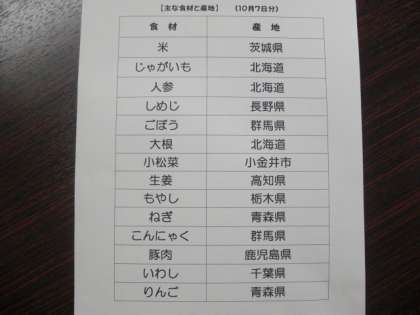 【主な食材と産地】 (10月7日分)
食 材 産 地
米 茨城県
じゃがいも 北海道
人参 北海道
しめじ 長野県
ごぼう 群馬県
大根 北海道
小松菜 小金井市
生姜 高知県
もやし 栃木県
ねぎ 青森県
こんにゃく 群馬県
豚肉 鹿児島県
いわし 千葉県
りんご 青森県